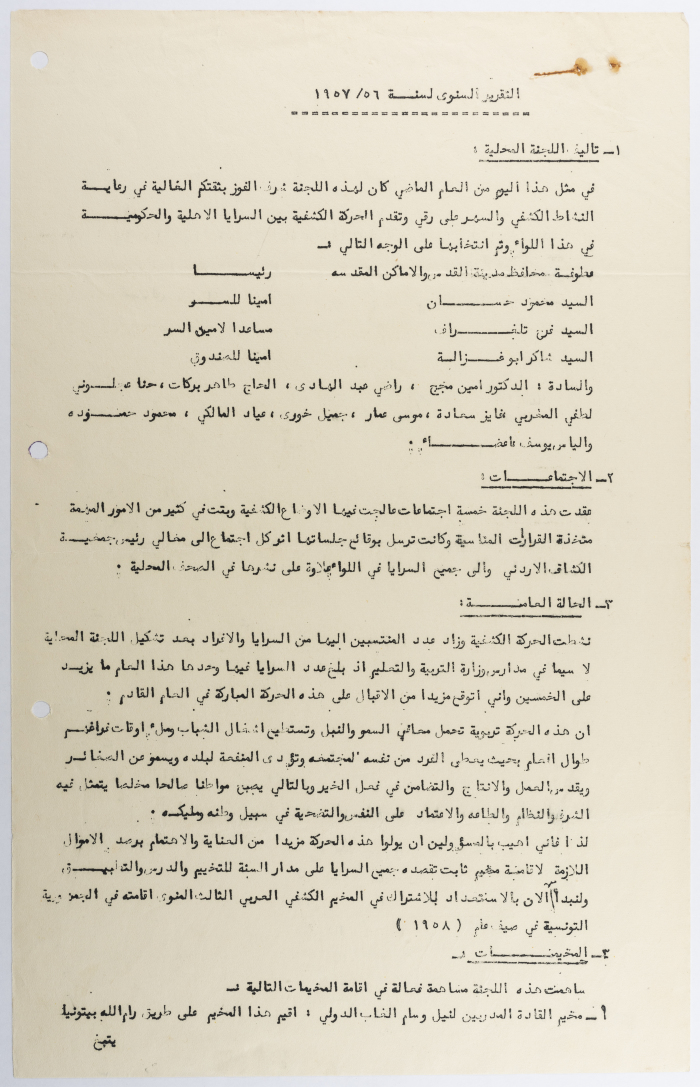 التقرير السنوى لسنة ٥٦/ ١٩٥٧
١ـ تاليف اللجنة المحلية :
في مثل هذا اليوم من العام الماضي كان لهذه اللجنة شرف الفوز بثقتكم الغالية في رعاية
النشاط الكشفي والسهر على رقي وتقدم الحركة الكشفية بين السرايا الاهلية والحكومية
في هذا اللواء وتم انتخابها على الوجه التالي :ـ
عطوفة محافظ مدينة القدس والاماكن المقدسه رئيسا
السيد محمود حسان امينا للسر
السيد فرج تلغراف مساعدا لامين السر
السيد شاكر ابو غزالية امينا للصندوق
والسادة : الدكتور امين مجج ، راضي عبد الهادى ، الحاج طاهر بركات ، حنا عجلوني
لطفي المغربي ، فايز سعادة ، موسى عمار ، جميل خورى ، عياد المالكي ، محمود حموده
والياس يوسف ، اعضاء .
٢ـ الاجتماعات :
عقدت هذه اللجنة خمسة اجتماعات عالجت فيها الاوضاع الكشفية وبتت في كثير من الامور المهمة
متخذة القرارات المناسبة وكانت ترسل بوقائع جلساتها اثر كل اجتماع الى معالي رئيس جمعية
الكشاف الاردني والى جميع السرايا في اللواء علاوة على نشرها في الصحف المحلية .
٣ـ الحالة العامة :
نشطت الحركة الكشفية وزاد عدد المنتسبين اليها من السرايا والافراد بعد تشكيل اللجنة المحلية
لا سيما في مدارس وزارة التربية والتعليم اذ بلغ عدد السرايا فيها وحدها هذا العام ما يزيد
على الخمسين واني اتوقع مزيدا من الاقبال على هذه الحركة المباركة في العام القادم .
ان هذه الحركة تربوية تحمل معاني السمو والنبل وتستطيع اشغال الشباب وملء اوقات فراغهم
طوال العام بحيث يعطى الفرد من نفسه لمجتمعه وتؤدى المنفعة لبلده ويسمو عن الصغائر
ويقدس العمل والانتاج والتضامن في فعل الخير وبالتالي يصبح مواطنا صالحا مخلصا يتمثل فيه
الشرف والنظام والطاعه والاعتماد على النفس والتضحية في سبيل وطنه ومليكه .
لذا فاني اهيب بالمسؤولين ان يولوا هذه الحركة مزيدا من العناية والاهتمام برصد الاموال
اللازمة لاقامة مخيم ثابت تقصده جميع السرايا على مدار السنة للتخييم والدرس والتطبيق
ولنبدأ من الان بالاستعداد للاشتراك في المخيم الكشفي العربي الثالث المنوى اقامته في الجمهورية
التونسية في صيف عام ( ١٩٥٨ )
٣ـ المخيمات :ـ
ساهمت هذه اللجنة مساهمة فعالة في اقامة المخيمات التالية :ـ
أ ـ مخيم القادة المدربين لنيل وسام الغاب الدولي : اقيم هذا المخيم على طريق رام الله بيتونيا
يتبع